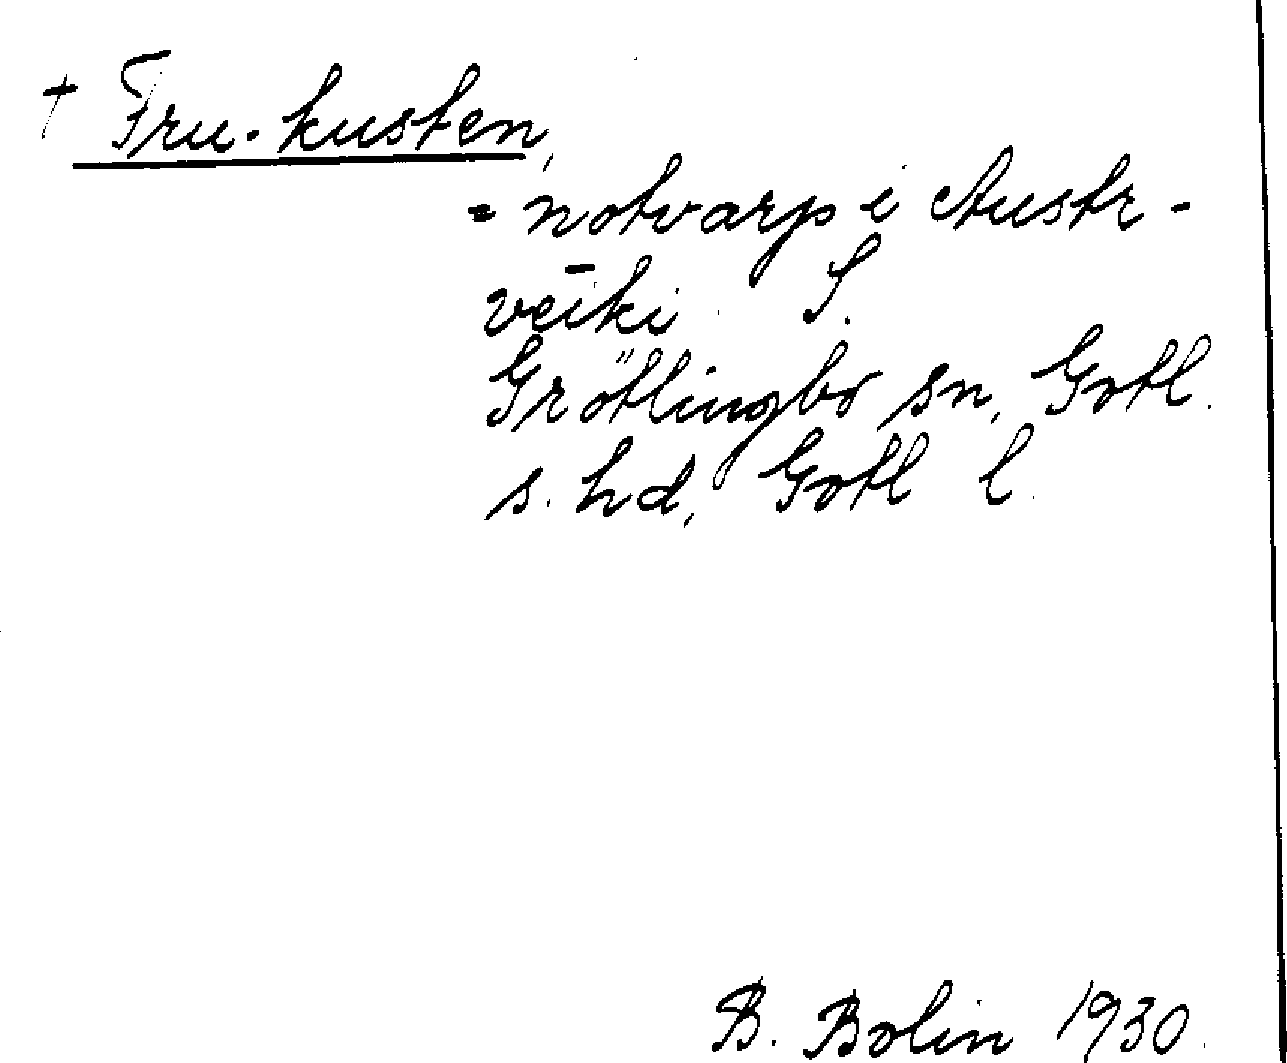 + Fru-kusten,
= notvarp i Austr-
vēiki. S.
Grötlingbo sn, Gotl.
s. hd, Gotl l.
B. Bolin 1930.